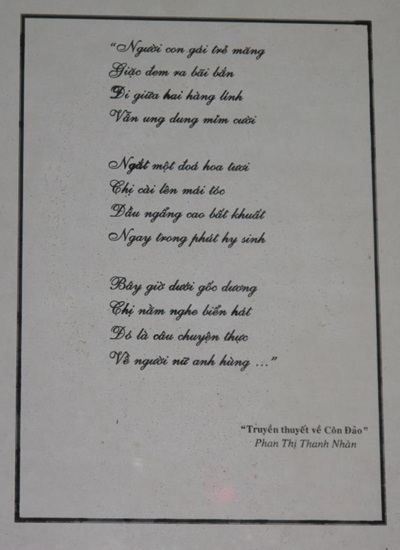 "Người con gái trẻ măng
Giặc đem ra bãi bắn
Đi giữa hai hàng lính
Vẫn ung dung mỉm cười
Ngắt một đoá hoa tươi
Chị cài lên mái tóc
Đầu ngẩng cao bất khuất
Ngay trong phút hy sinh
Bây giờ dưới gốc dương
Chị nằm nghe biển hát
Đó là câu chuyện thực
Về người nữ anh hùng ..."
"Truyền thuyết về Côn Đảo"
Phan Thị Thanh Nhàn